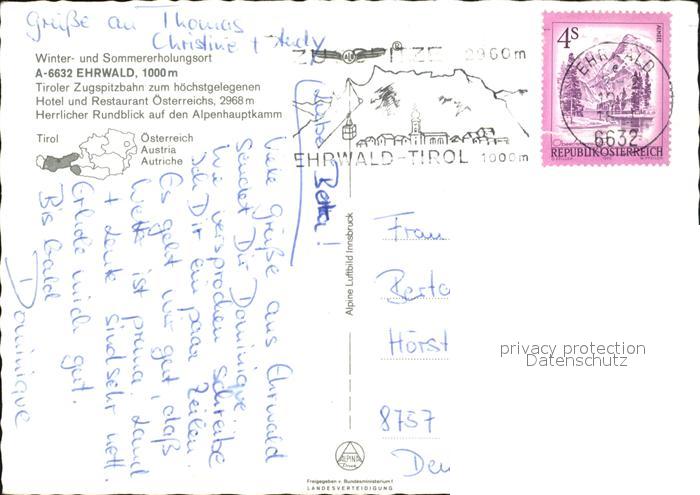 Grüße an Thomas
Christine + Andy
Winter- und Sommererholungsort
A-6632 EHRWALD, 1000 m
Tiroler Zugspitzbahn zum höchstgelegenen
Hotel und Restaurant Österreichs, 2968 m
Herrlicher Rundblick auf den Alpenhauptkamm
Tirol
Österreich
Austria
Autriche
2960m
EHRWALD-TIROL 1000m
4S
EHRWALD
6632
REPUBLIK ÖSTERREICH
Liebe Betta!
Viele Grüße aus Ehrwald
sendet Dir Dominique.
Wie versprochen schreibe
ich Dir ein paar Zeilen.
Es geht mir gut, daß
Wetter ist prima, Land
+ Leute sind sehr nett.
Erhole mich gut.
Bis bald
Dominique
Alpine Luftbild Innsbruck
Frau
Berta
Hörst
8757
Deu
ALPINA
Druck
Freigegeben v. Bundesministerium f.
LANDESVERTEIDIGUNG
privacy protection
Datenschutz